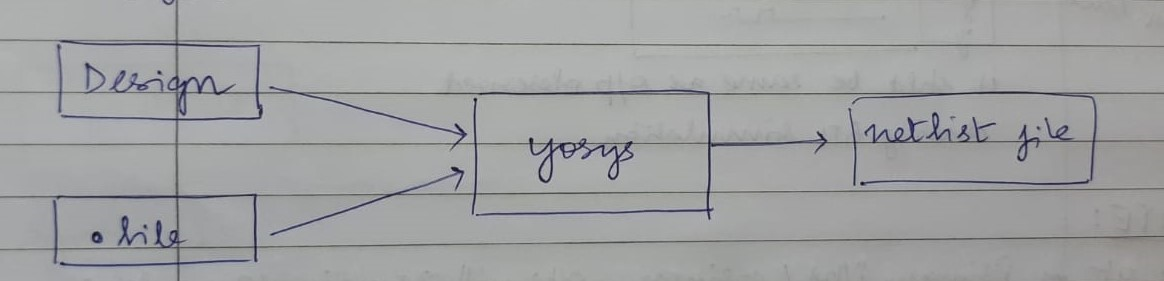 Design
yosys
netlist file